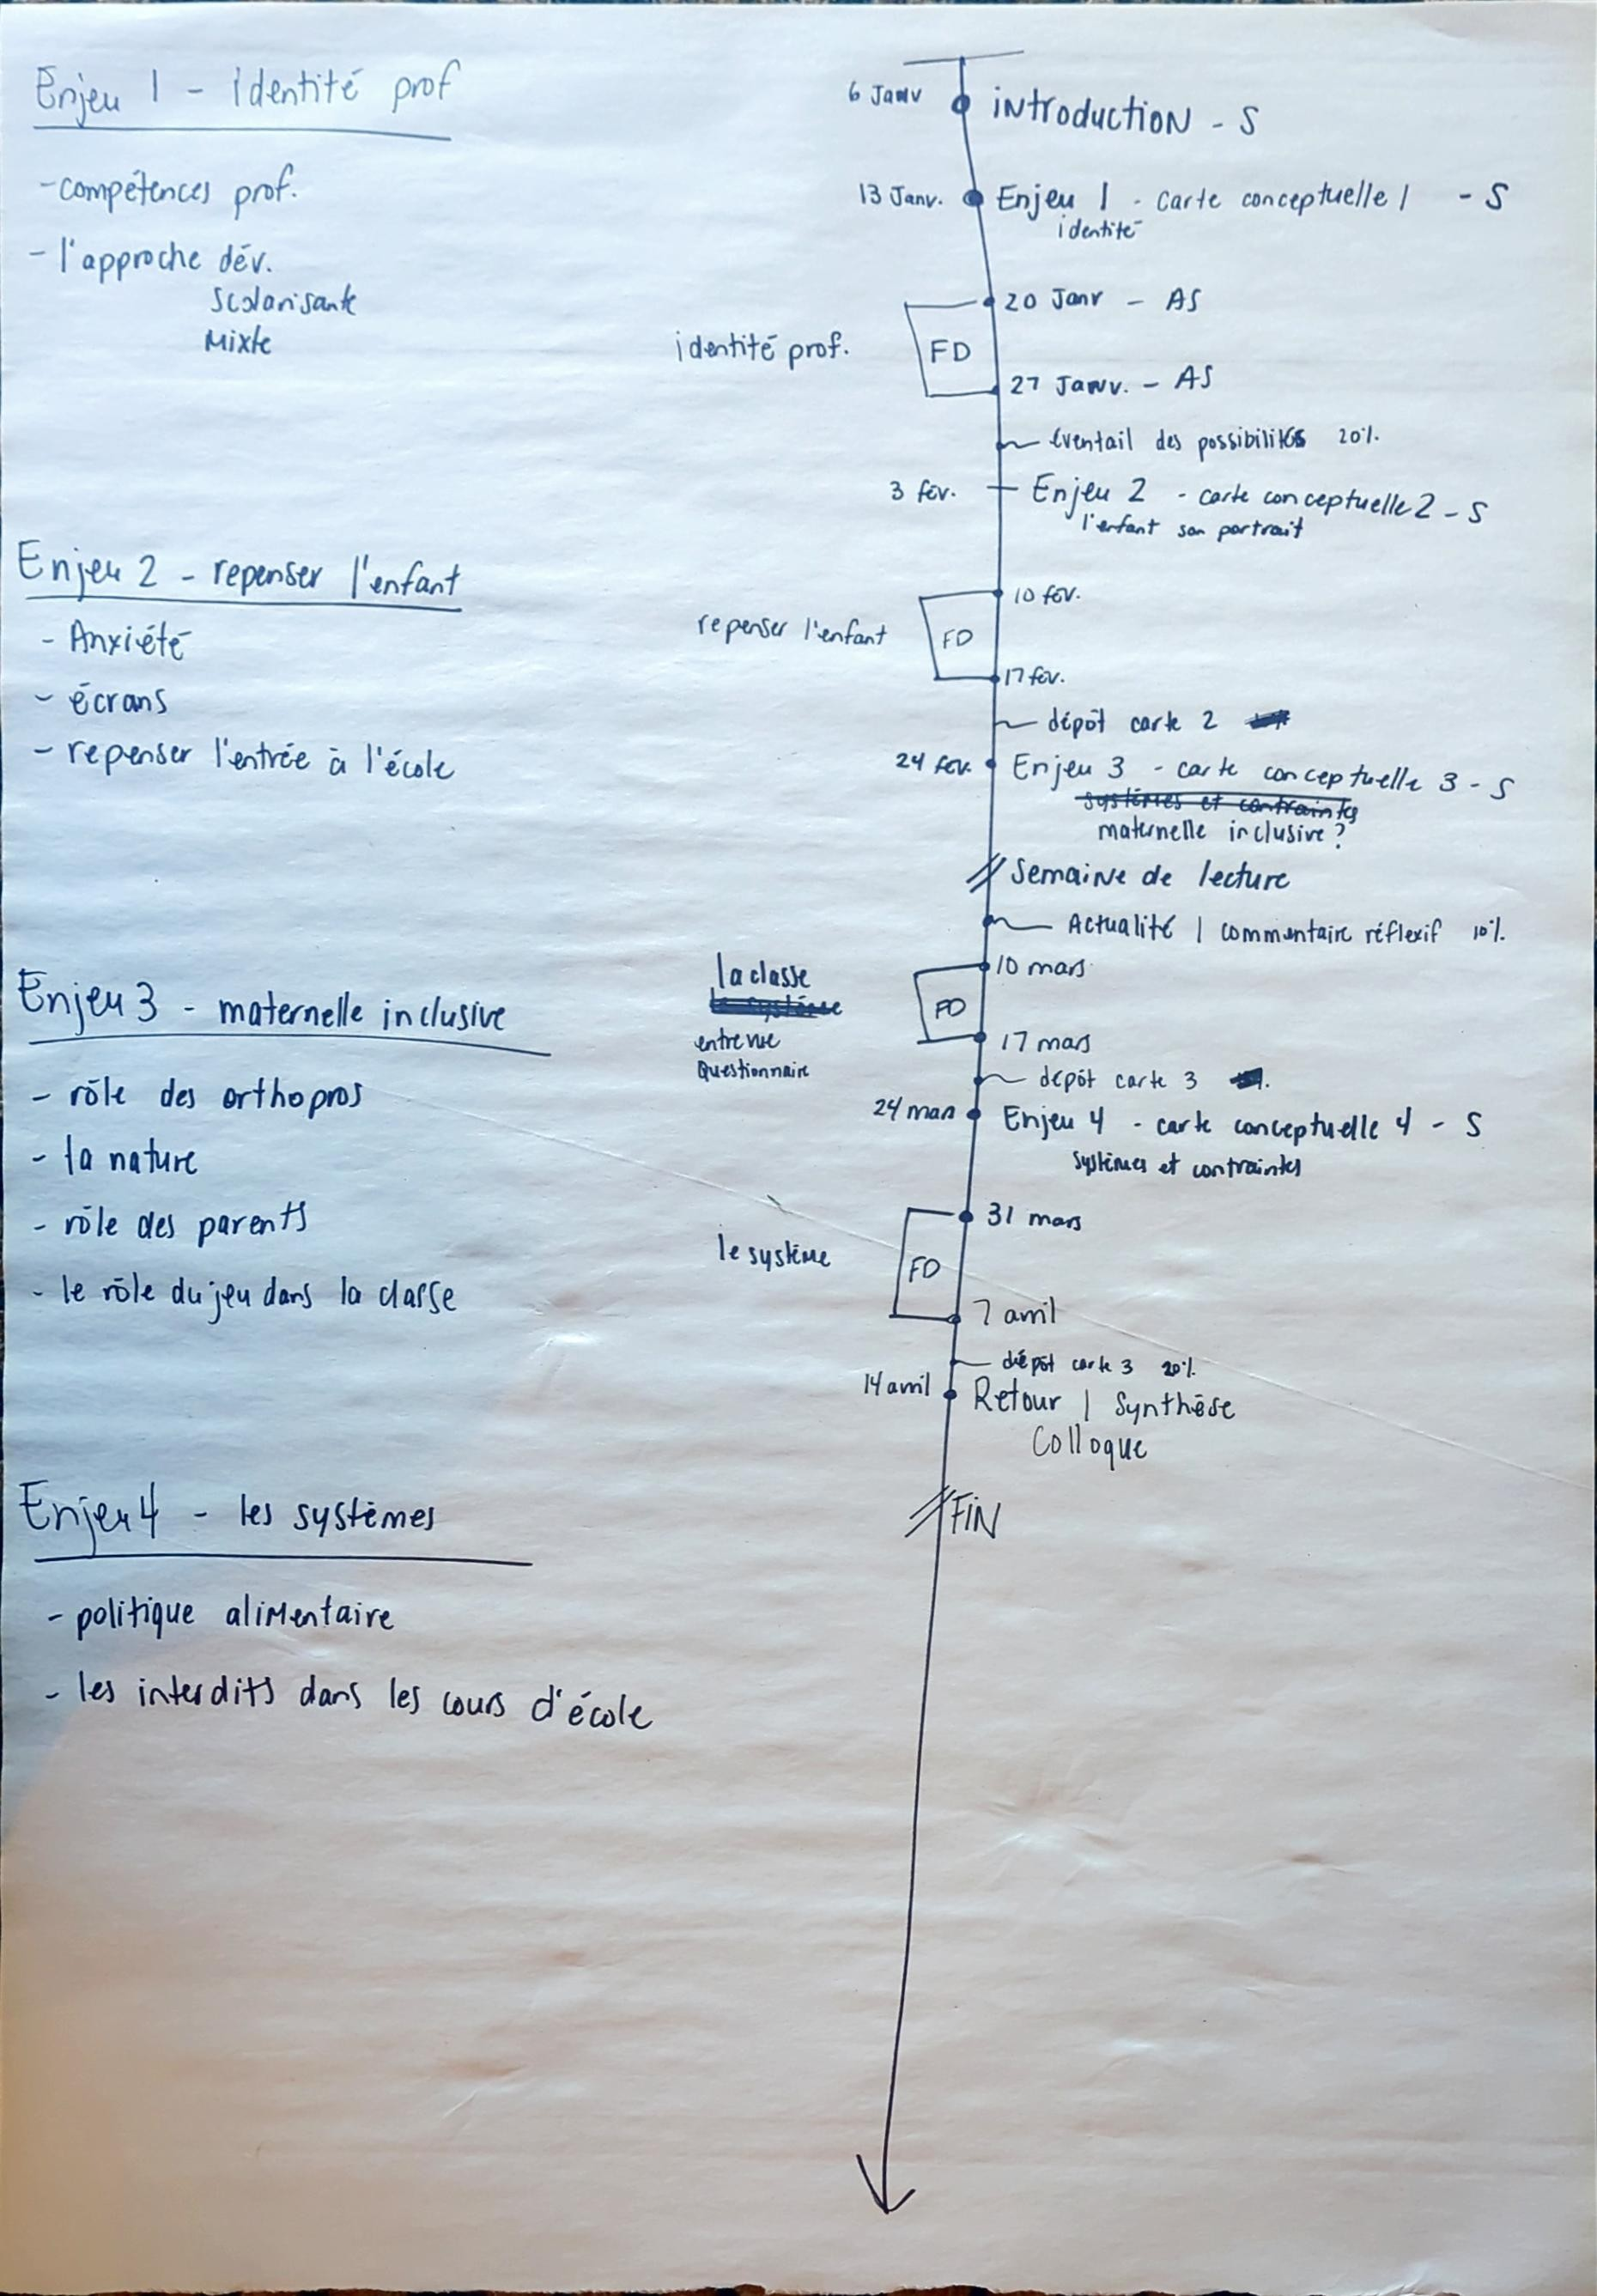 Enjeu 1 - Identité prof
- compétences prof.
- l'approche dév.
scolarisante
Mixte
Enjeu 2 - repenser l'enfant
- Anxiété
- écrans
- repenser l'entrée à l'école
Enjeu 3 - maternelle inclusive
- rôle des orthopros
- la nature
- rôle des parents
- le rôle du jeu dans la classe
Enjeu 4 - les systèmes
- politique alimentaire
- les interdits dans les cours d'école
6 Janv introduction - S
13 Janv. Enjeu 1 - carte conceptuelle 1 - S
identité
20 Janv - AS
identité prof. FD
27 Janv. - AS
éventail des possibilités 20%.
3 fév. Enjeu 2 - carte conceptuelle 2 - S
l'enfant son portrait
10 fév.
repenser l'enfant FD
17 fév.
dépôt carte 2
24 fév. Enjeu 3 - carte conceptuelle 3 - S
systèmes et contraintes
maternelle inclusive?
Semaine de lecture
Actualité | commentaire réflexif 10%.
10 mars
la classe
le système
FD
entrevue
Questionnaire
17 mars
dépôt carte 3
24 mars Enjeu 4 - carte conceptuelle 4 - S
systèmes et contraintes
31 mars
le système FD
7 avril
dépôt carte 3 20%.
14 avril Retour | Synthèse
Colloque
FIN